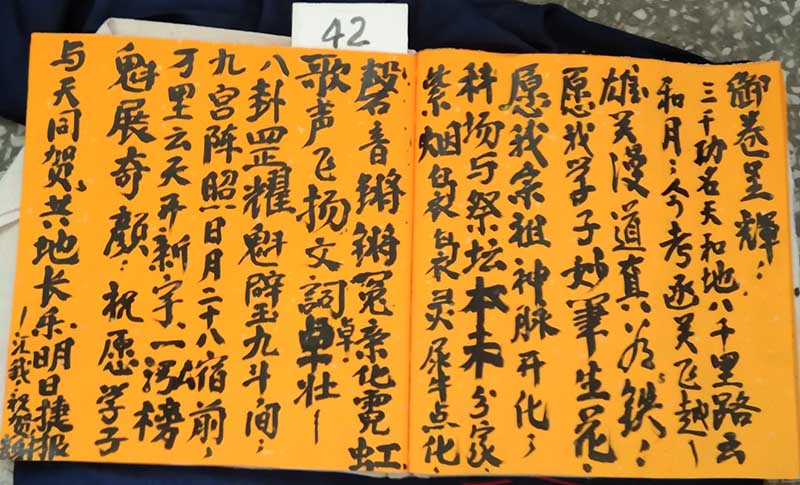 42
御卷呈輝：
三千功名天和地八千里路云
和月：今考函关飞越～
雄关漫道真八为铁：
愿我学子妙筆生花，
愿我宗祖神脉开化，
科场与祭坛本未分家，
紫烟袅袅灵犀牛点化，
磬音锵锵冤亲化霓虹
歌声飞扬文词卓壮～
八卦四正耀魁壁玉九斗间；
九宫阵照日月二十八宿前，
万里云天开新宇、一沔榜
魁展奇颜：祝愿学子
与天同贺，共地长乐，明日捷报